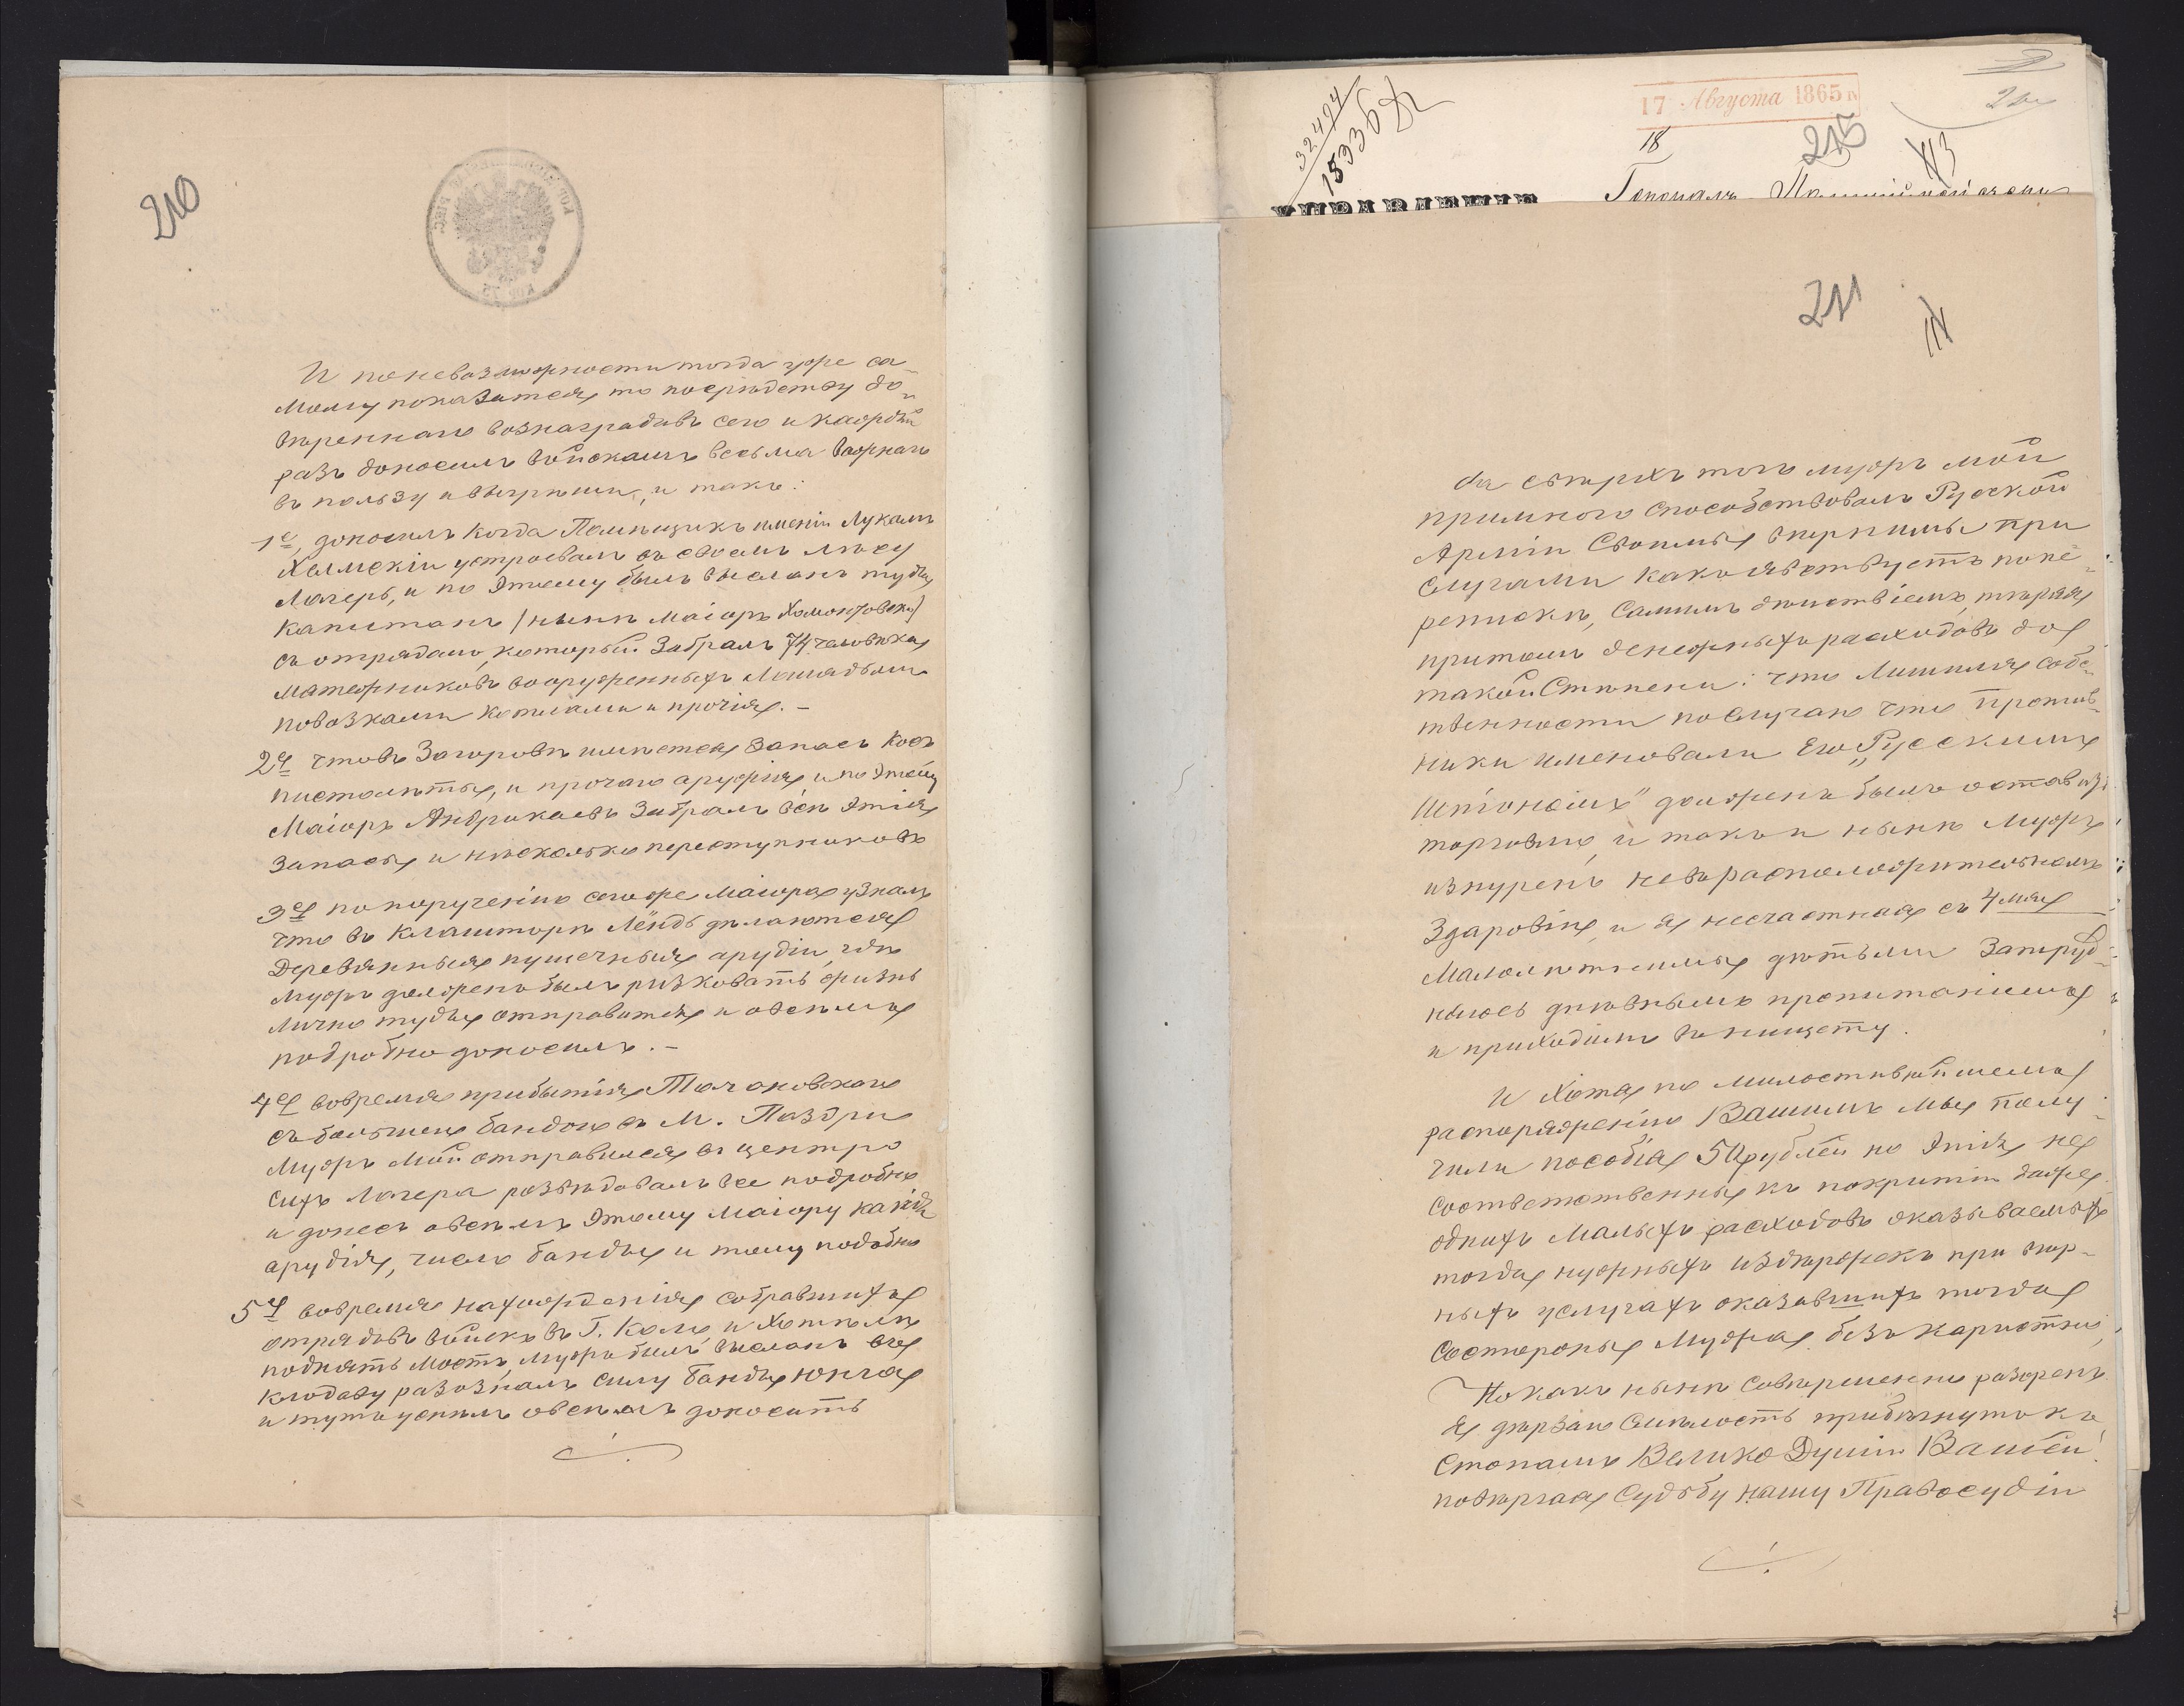 210
И по невозможности тогда уже са-
мому показатся, то посрѣдству до-
вѣреннаго вознаградивъ сего и каждый
разъ доносилъ войскамъ весьма важная
въ пользу и выгрыши, и такъ:
1е, доносилъ когда Помѣщикъ имѣнія Лукомъ
Хелмскіи устроевалъ въ своемъ лѣсу
Лагерь, и по этому былъ высланъ туды
Капитанъ /нынѣ Маіоръ Хомонтовскій/
съ отрядомъ, который забралъ 74 человѣка
матежниковъ вооруженныхъ лошадьми
повозками котлами и прочія. –
2е что въ Загоровѣ имѣется запасъ косъ
пистолѣты, и прочаго аружія и по этому
Маіоръ Андрикаевъ забралъ всѣ этія
запасы и нѣсколько переступниковъ
3е по порученію сего же Маіора узналъ
что въ Клашторѣ Лёндъ дѣлаются
Деревянныя пушечныя арудіи, гдѣ
мужъ долженъ былъ рызковать жизнь
лично туды отправится и овсемъ
подробно доносилъ. –
4е вовремя прибытія Тачановскаго
съ большею бандою въ М. Паздри
мужъ мой отправился въ центро
сихъ лагера розвѣдовалъ все подробно
и донесъ овсемъ этому Маіору какія
арудія, число банды и тому подобно
5е вовремя нахожденія собравшихъ
отрядовъ войскъ въ Г. Коло, и хотѣли
поднять мостъ, мужъ былъ высланъ
Клодаву разознать силу банды Юнга
и туту успѣлъ овсемъ доносить
17 Августа 1865
32494
15336
18
215
113
211
За старихъ того мужъ мой
примного способствовалъ Руской
Арміи Своимы вѣрными при
слугами како явствуетъ попе-
репискѣ, самимъ дѣиствіемъ, тѣряя
притомъ денежныхъ расходовъ до
такой Стѣпени: что лишился собс-
твенности послучаю что против-
ники именовали Его „Русскимъ
Шпіономъ" долженъ былъ оставить
торговлю, и такъ и нынѣ мужъ
изнуренъ невъ расположительномъ
Здаровіи, и я несчастная съ 4мя
Малолѣтнимы дѣтьми Затруд-
няюсь днѣвнымъ пропитаніемъ
и приходимъ въ нищету.
И хотя по милостивѣйшему
распоряженію Вашимъ мы полу-
чили пособія 50 рублей но этія не
соотвѣтственны къ покритіи даже
однихъ малыхъ расходовъ оказываемыхъ
тогда нужныхъ издержекъ при вѣр-
ныхъ услугахъ оказавшихъ тогда
состороны мужа безъ каристни,
Но какъ нынѣ совершенно разоренъ
я дерзаю смѣлость прибѣгнуть къ
стопамъ Велико Душія Вашей
повѣргая судьбу нашу Правосудіи